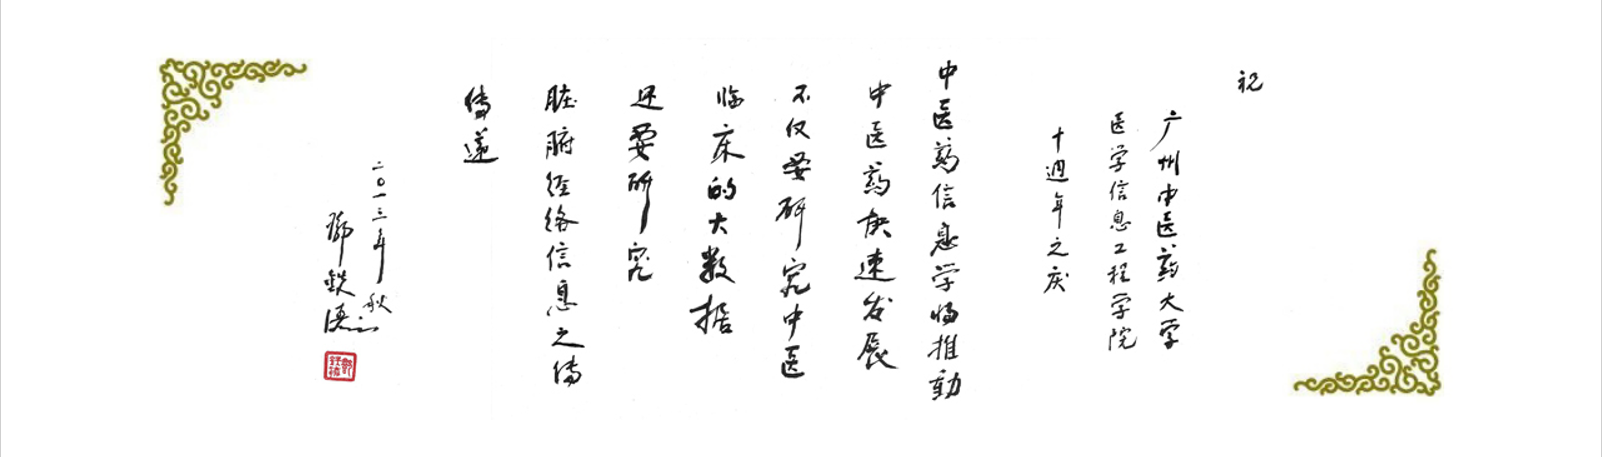 祝
广州中医药大学
医学信息工程学院
十週年之庆
中医药信息学将推動
中医药快速发展
不仅要研究中医
临床的大数据
还要研究
脏腑经络信息之传
傳递
二〇一三年秋
鄧鉄涛